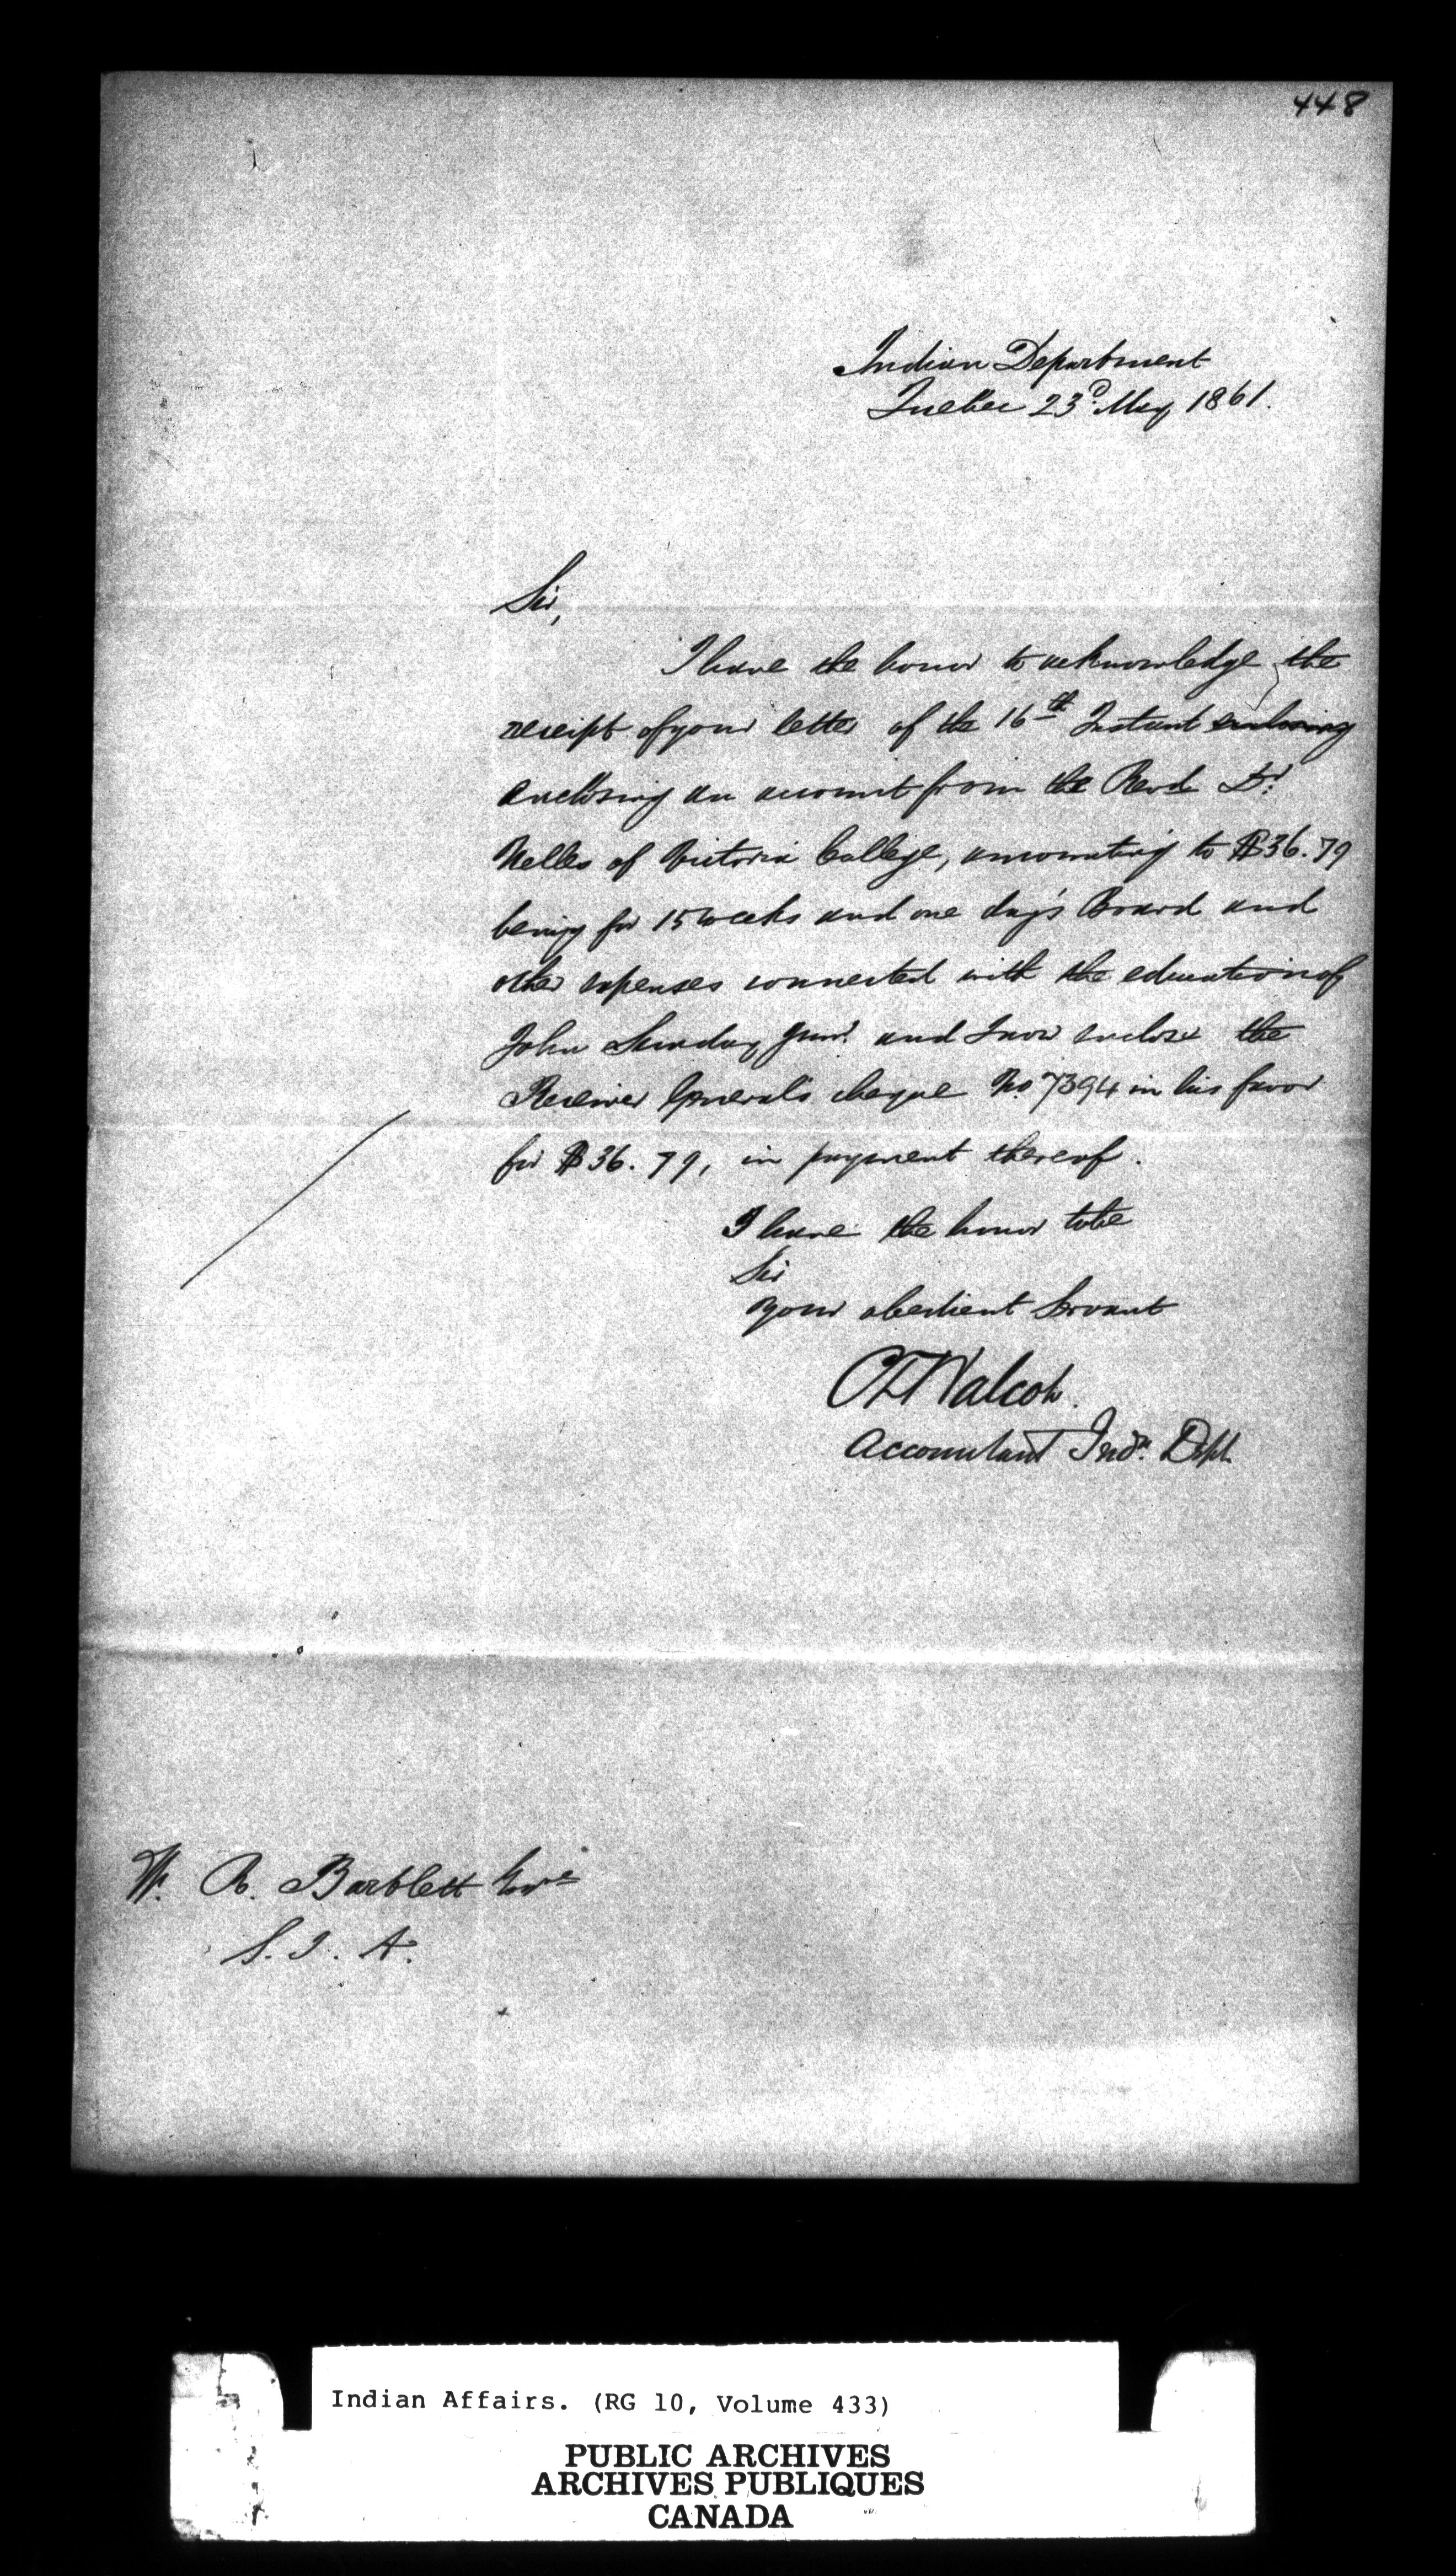 448
Indian Department
Quebec 23d. May 1861.
Sir,
I have the honor to acknowledge the
receipt of your letter of the 16th Instant enclosing
enclosing an account from the Revd Dr.
Nelles of Victoria College, amounting to $36.79
being for 15 weeks and one day's Board and
other expenses connected with the education of
John Sunday Junr. and I now enclose the
Receiver General's cheque No. 7394 in his favor
for $36.79, in payment thereof.
I have the honor to be
Sir
Your obedient Servant
C T Walcot.
Accountant Indn. Dept.
W. R. Bartlett Esqre
S. I. A.
Indian Affairs. (RG 10, Volume 433)
PUBLIC ARCHIVES
ARCHIVES PUBLIQUES
CANADA